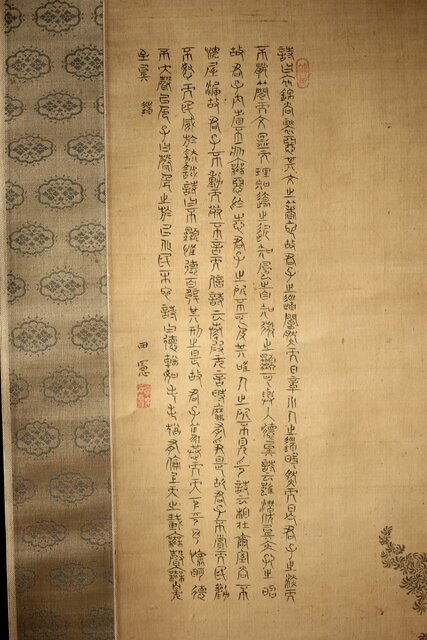 詩曰衣錦尚絅惡其文之著也故君子之道闇然而日章小人之道的然而日亡君子之道淡而
不厭簡而文溫而理知遠之近知風之自知微之顯可與入德矣詩云潛雖伏矣亦孔之昭
故君子內省不疚無惡於志君子之所不可及其唯人之所不見乎詩云相在爾室尚不
愧屋漏故君子不動而敬不言而信詩云奏假無言時靡有爭是故君子不賞而民勸
不怒而民威於鈇鉞詩曰不顯惟德百辟其刑之是故君子篤恭而天下平詩曰予懷明德
不大聲以色子曰聲色之於以化民末也詩曰德輶如毛毛猶有倫上天之載無聲無臭
至矣
田憲